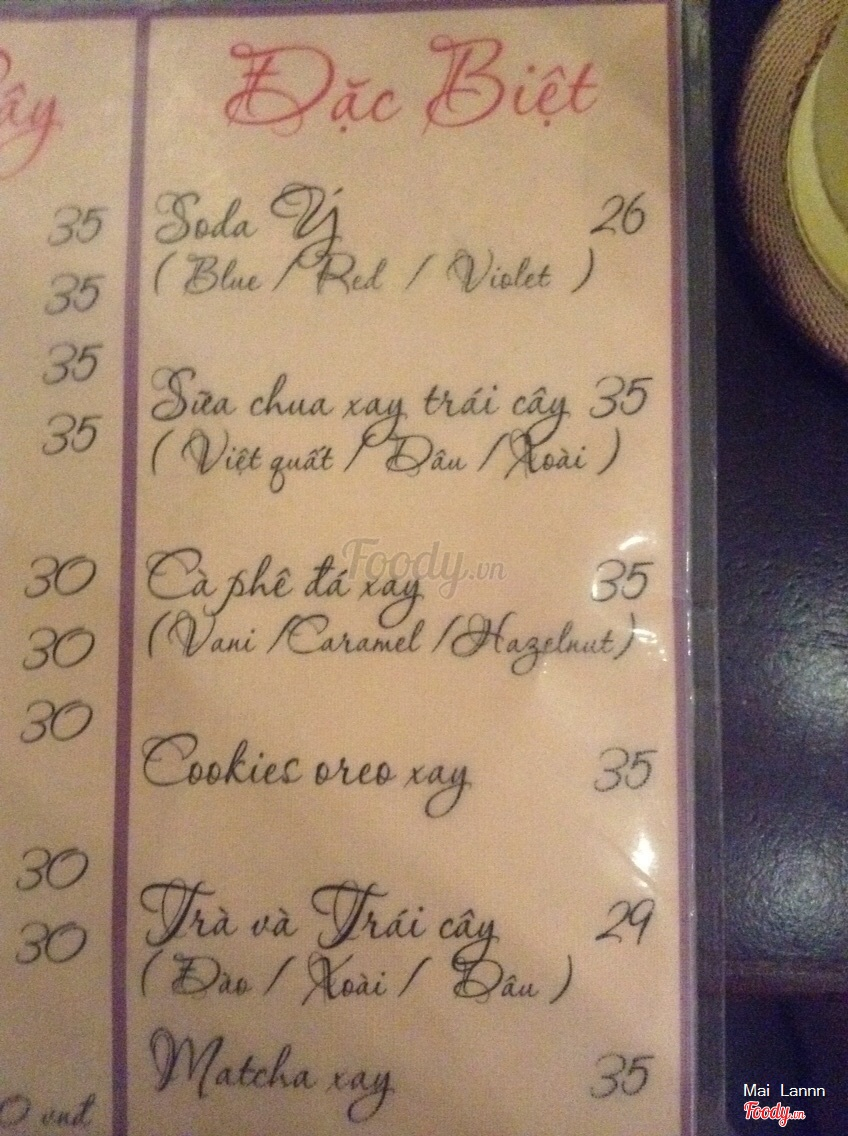 ây
35
35
35
35
30
30
30
30
30
0 vnđ
Đặc Biệt
Soda Ý 26
( Blue / Red / Violet )
Sữa chua xay trái cây 35
( Việt quất / Dâu / Xoài )
Cà phê đá xay 35
(Vani /Caramel /Hazelnut)
Cookies oreo xay 35
Trà và Trái cây 29
( Đào / Xoài / Dâu )
Matcha xay 35
Foody.vn
Mai Lannn
Foody.vn